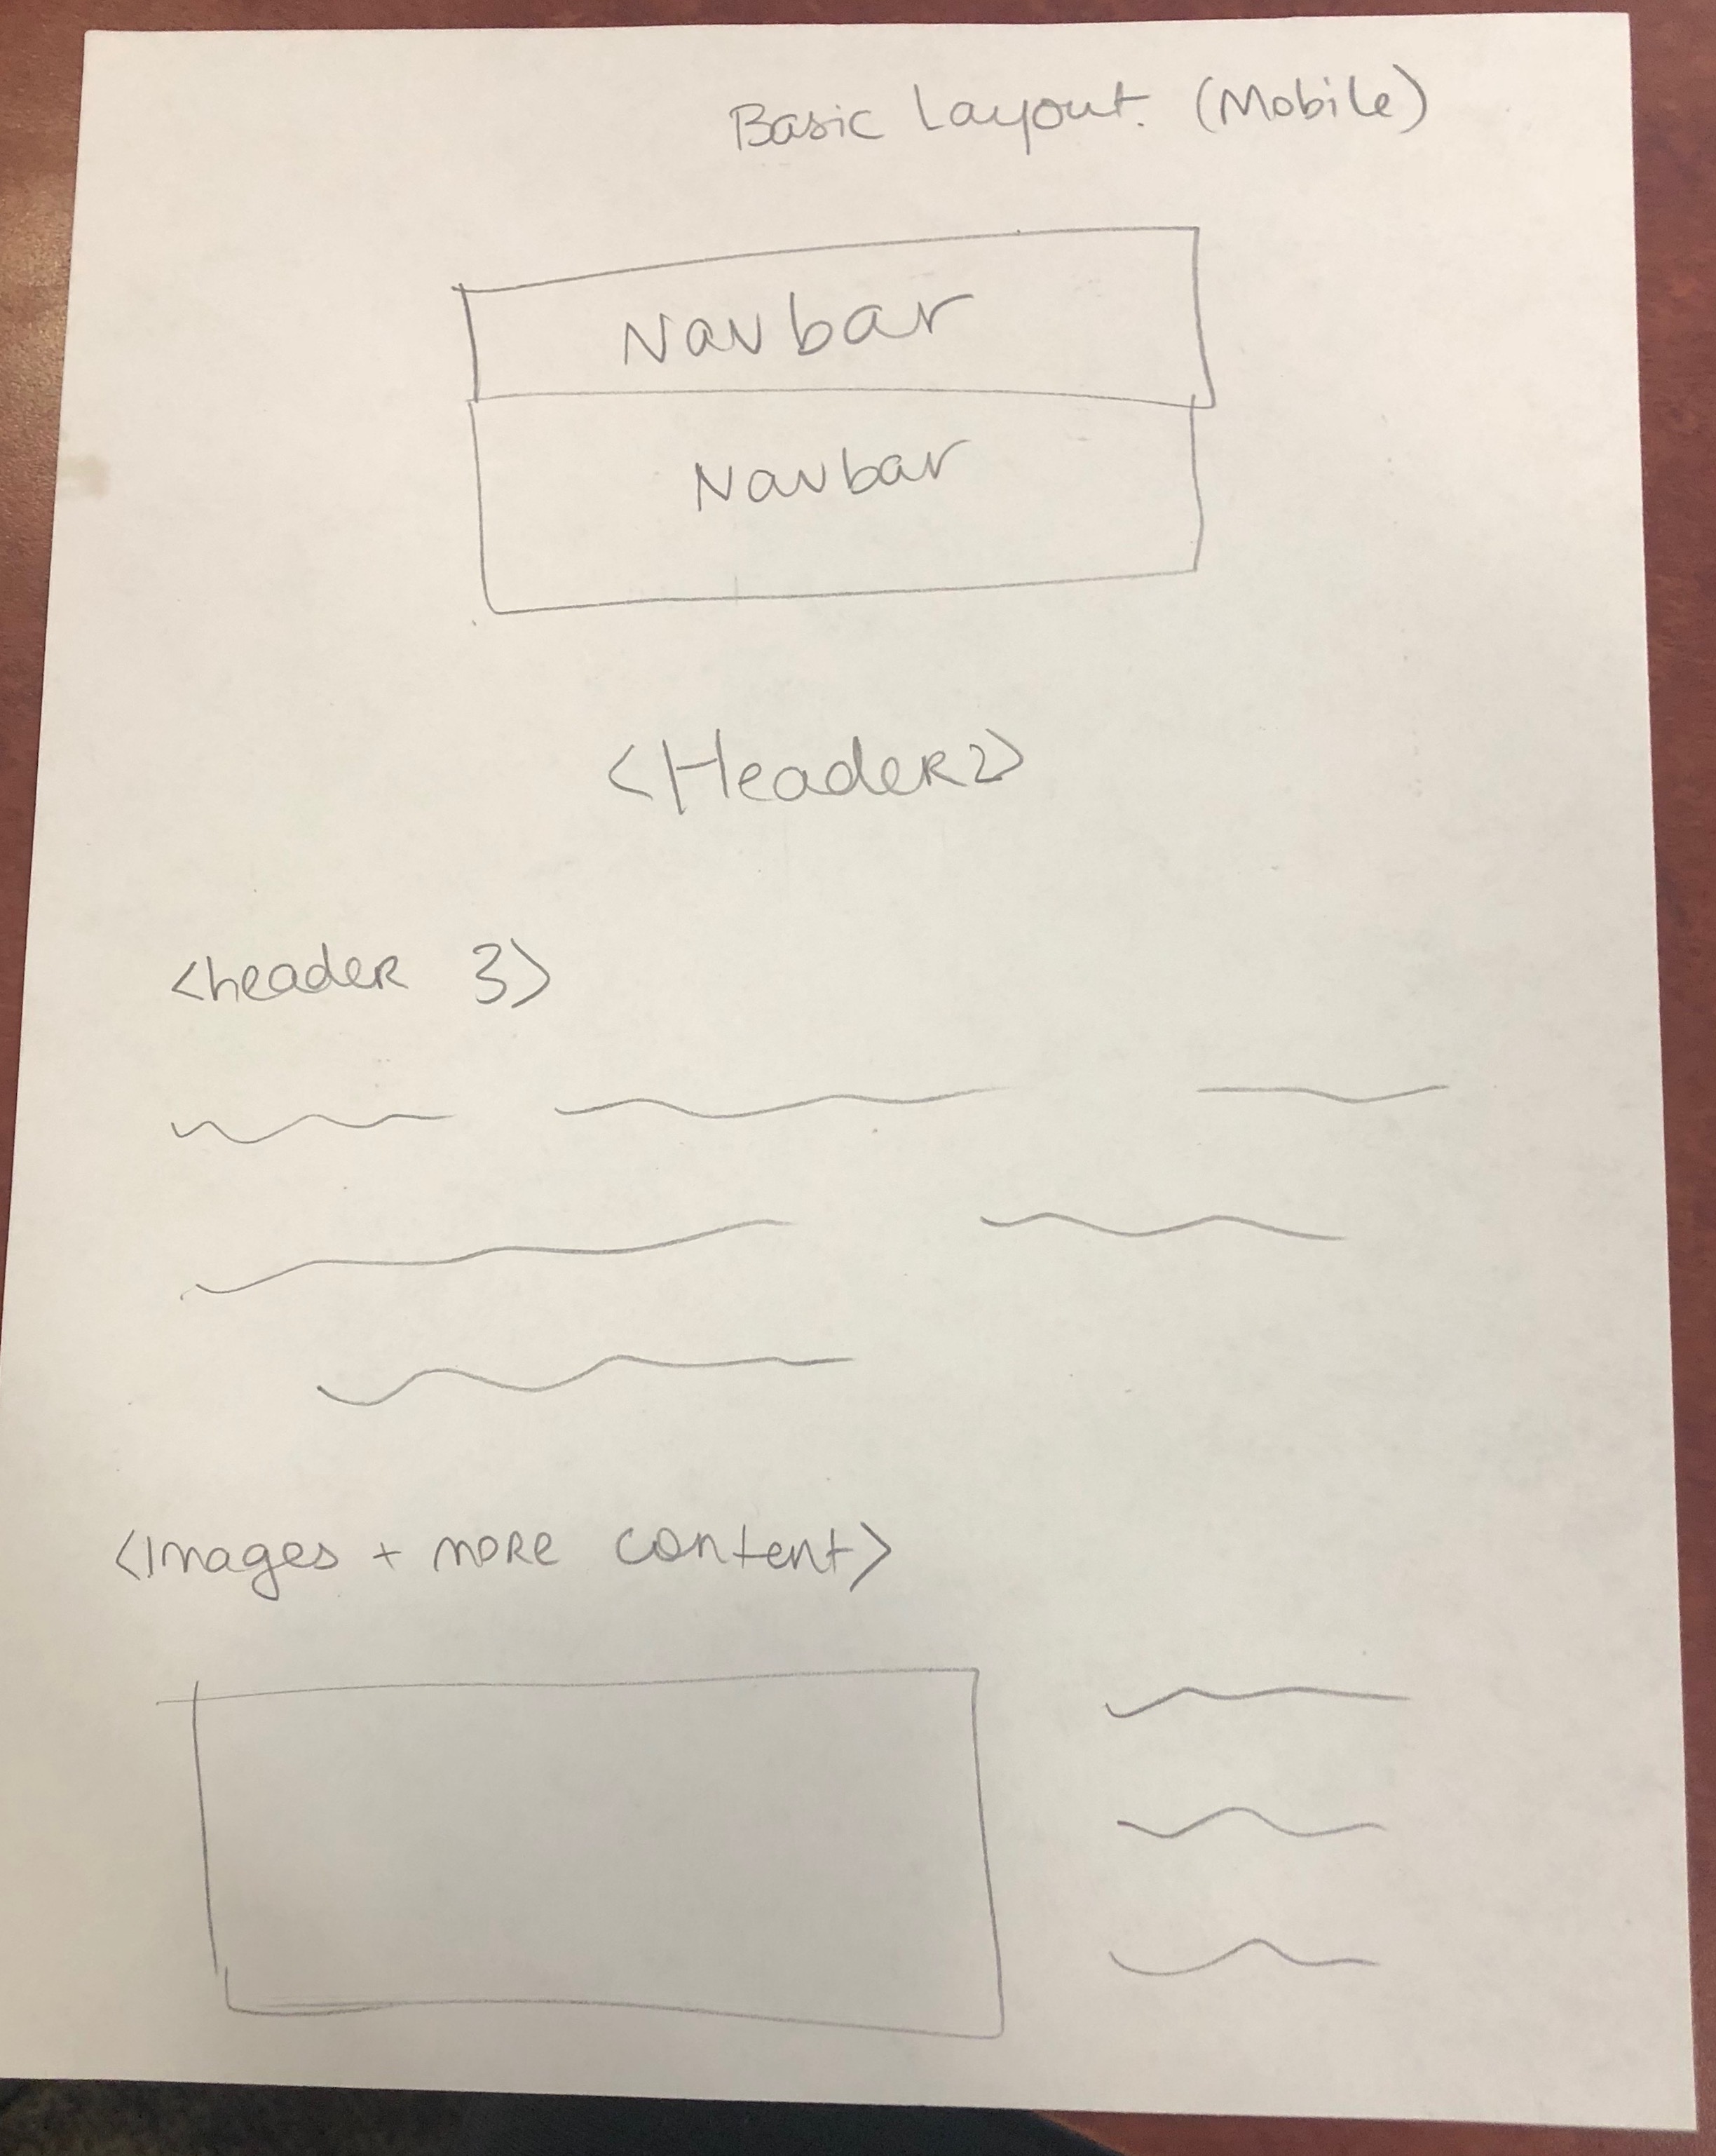 Basic Layout. (Mobile)
Navbar
Navbar
<Header2>
<header 3>
<Images + more content>